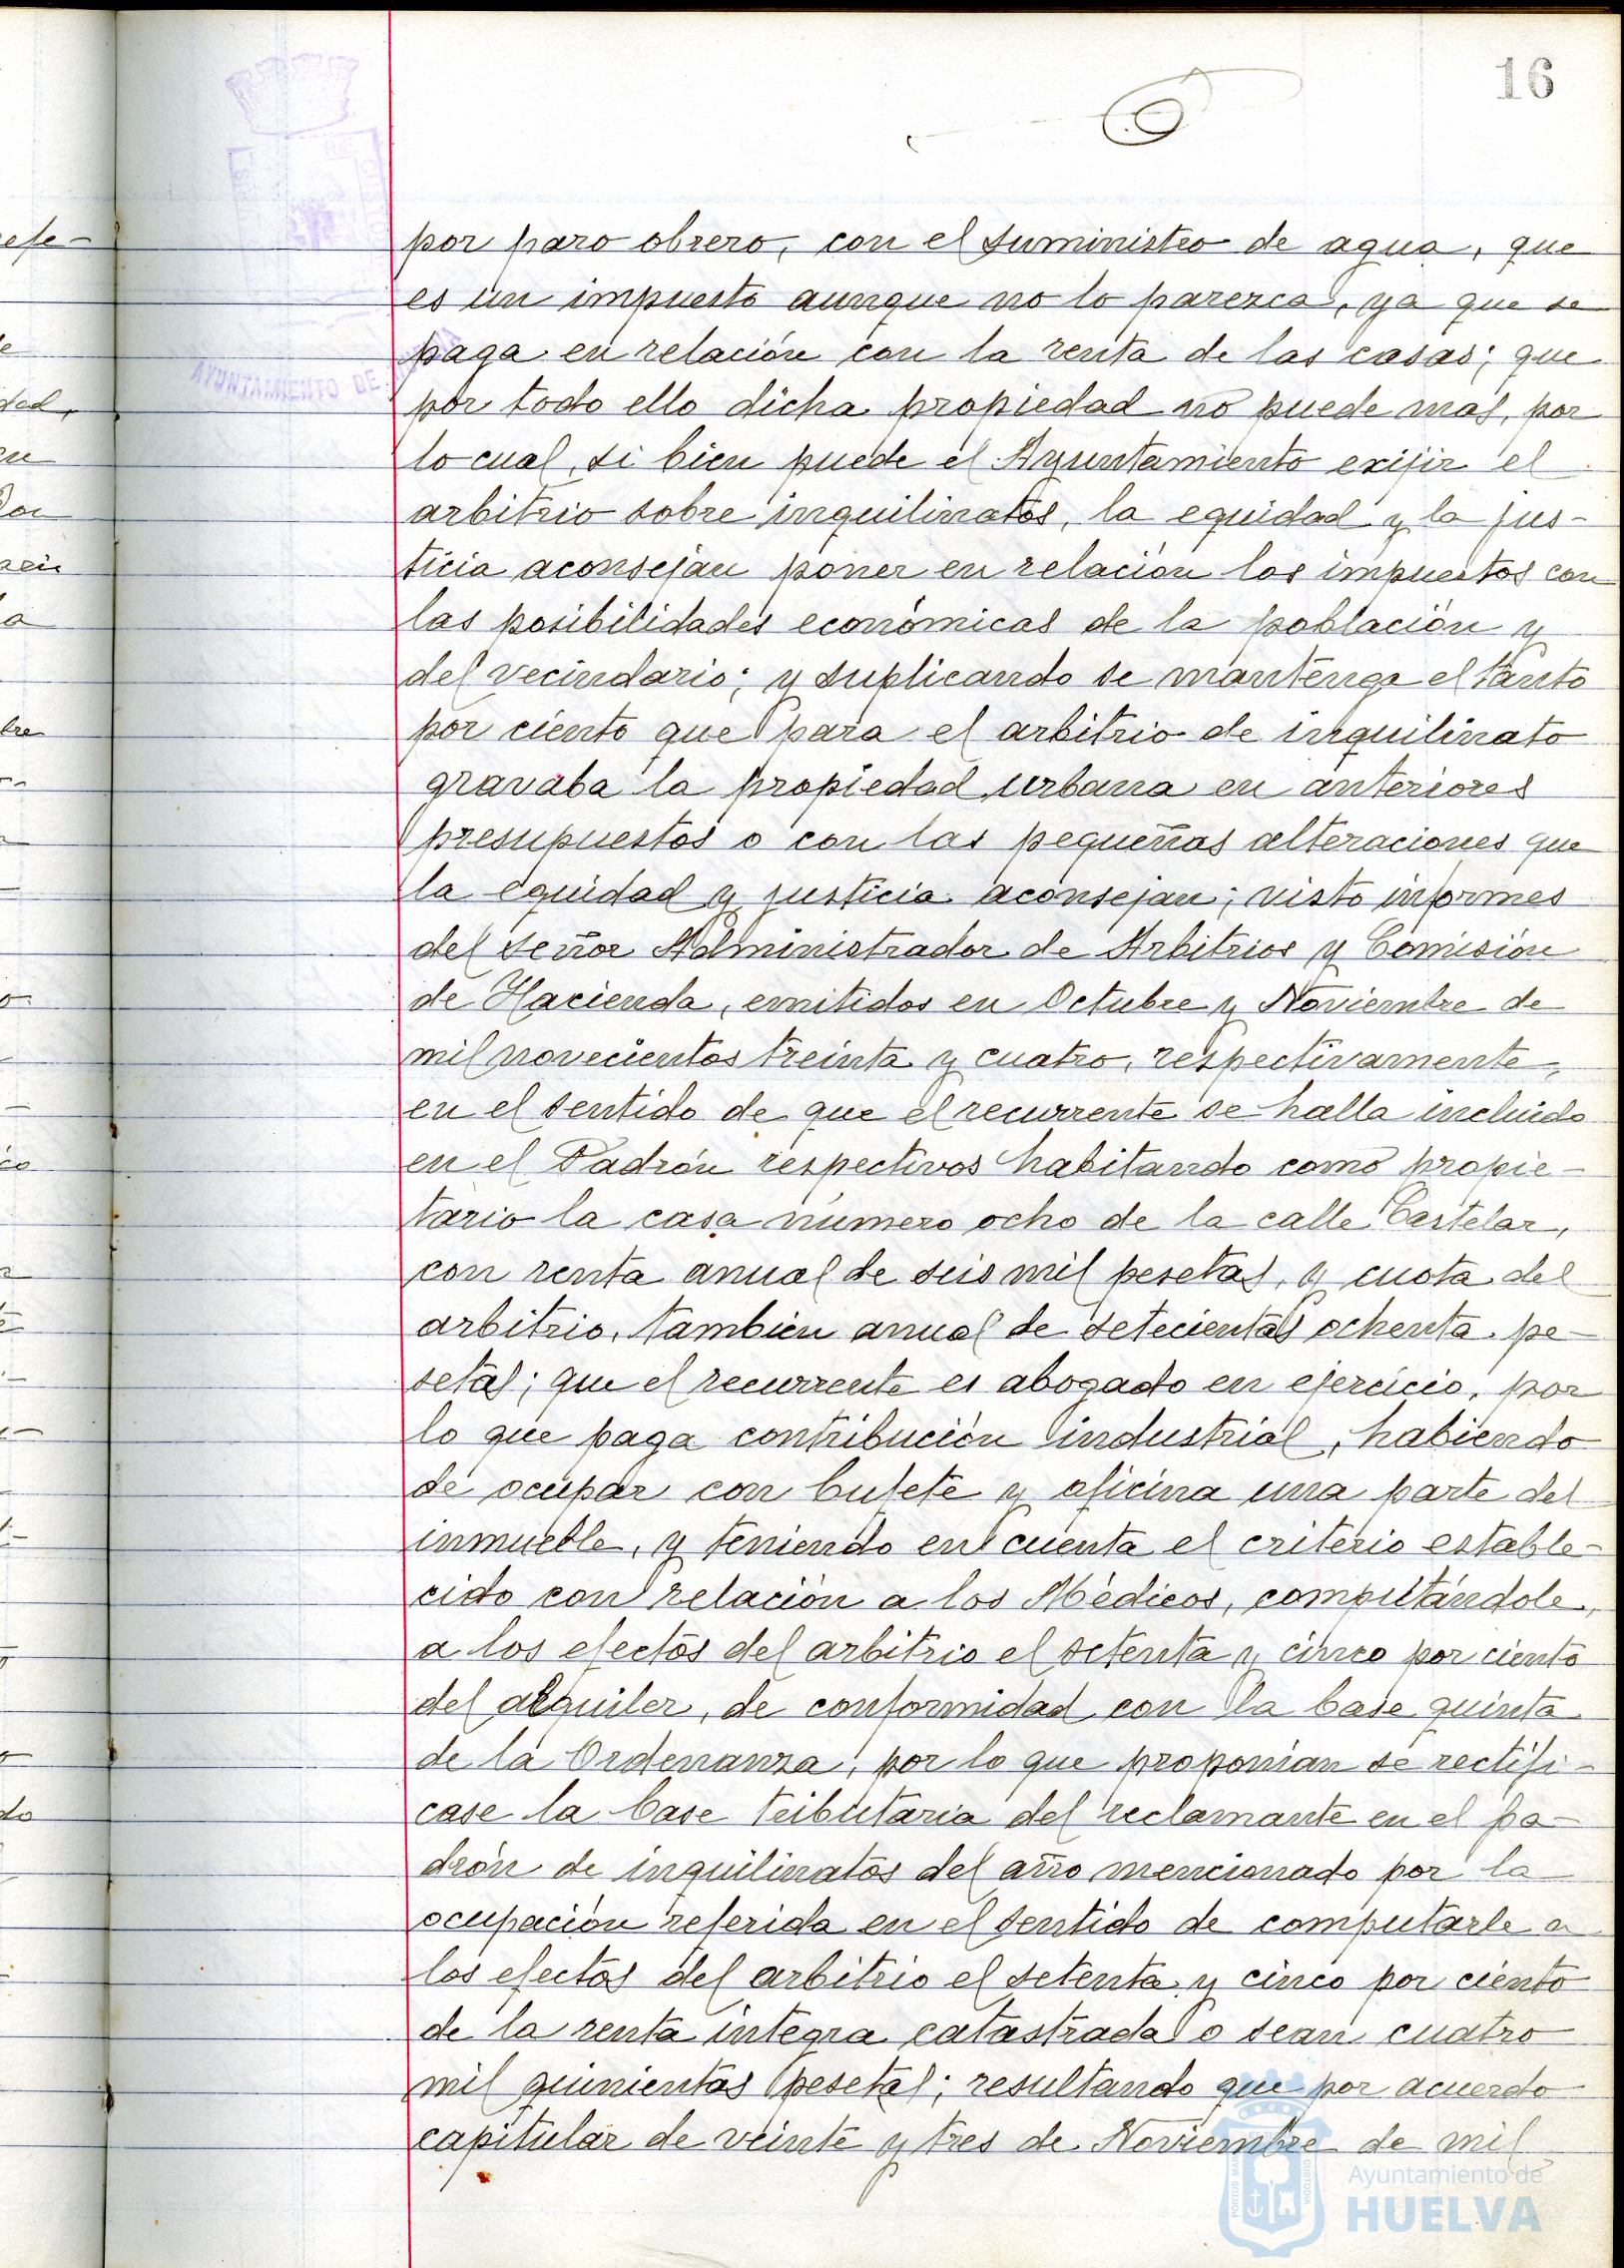 16
por paro obrero, con el suministro de agua, que
es un impuesto aunque no lo parezca, ya que se
paga en relación con la renta de las casas; que
por todo ello dicha propiedad no puede mas, por
lo cual, si bien puede el Ayuntamiento exijir el
arbitrio sobre inquilinatos, la equidad y la jus-
ticia aconsejan poner en relación los impuestos con
las posibilidades económicas de la población y
del vecindario; y suplicando se mantenga el tanto
por ciento que para el arbitrio de inquilinato
gravaba la propiedad urbana en anteriores
presupuestos o con las pequeñas alteraciones que
la equidad y justicia aconsejan; visto informes
del señor Administrador de Arbitrios y Comisión
de Hacienda, emitidos en Octubre y Noviembre de
mil novecientos treinta y cuatro, respectivamente,
en el sentido de que el recurrente se halla incluido
en el Padrón respectivos habitando como propie-
tario la casa número ocho de la calle Castelar,
con renta anual de seis mil pesetas, y cuota del
arbitrio, también anual de setecientas ochenta pe-
setas; que el recurrente es abogado en ejercicio, por
lo que paga contribución industrial, habiendo
de ocupar con bufete y oficina una parte del
inmueble, y teniendo en cuenta el criterio estable-
cido con relación a los Médicos, computándole,
a los efectos del arbitrio el setenta y cinco por ciento
del alquiler, de conformidad con la base quinta
de la Ordenanza, por lo que proponían se rectifi-
case la base tributaria del reclamante en el pa-
drón de inquilinatos del año mencionado por la
ocupación referida en el sentido de computarle a
los efectos del arbitrio el setenta y cinco por ciento
de la renta integra catastrada o sean cuatro
mil quinientas pesetas; resultando que por acuerdo
capitular de veinte y tres de Noviembre de mil
AYUNTAMIENTO DE
Ayuntamiento de
HUELVA